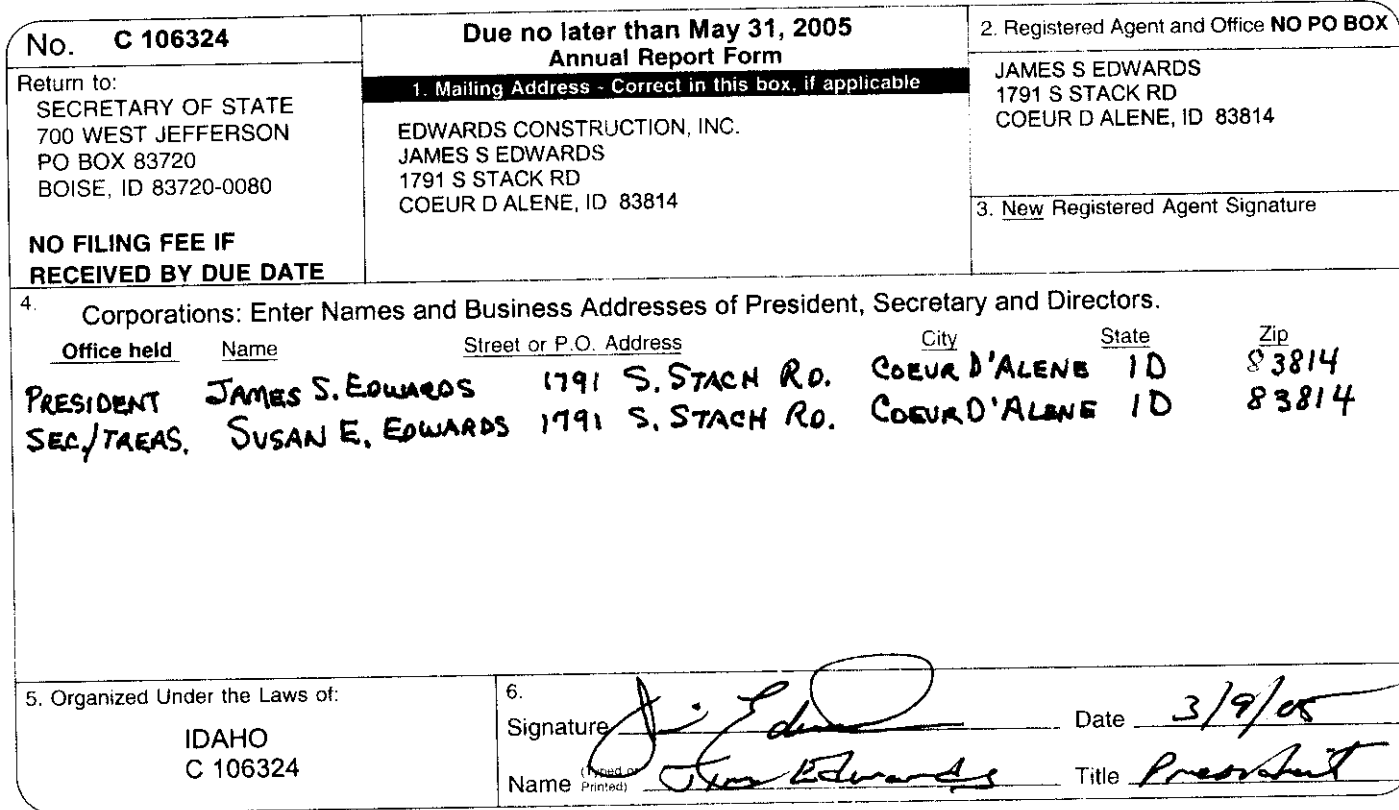 No. C 106324
Return to:
SECRETARY OF STATE
700 WEST JEFFERSON
PO BOX 83720
BOISE, ID 83720-0080
NO FILING FEE IF
RECEIVED BY DUE DATE
Due no later than May 31, 2005
Annual Report Form
1. Mailing Address - Correct in this box, if applicable
EDWARDS CONSTRUCTION, INC.
JAMES S EDWARDS
1791 S STACK RD
COEUR D ALENE, ID 83814
2. Registered Agent and Office NO PO BOX
JAMES S EDWARDS
1791 S STACK RD
COEUR D ALENE, ID 83814
3. New Registered Agent Signature
4. Corporations: Enter Names and Business Addresses of President, Secretary and Directors.
Office held Name Street or P.O. Address City State Zip
PRESIDENT JAMES S. EDWARDS 1791 S. STACH RD. COEUR D'ALENE ID 83814
SEC./TREAS. SUSAN E. EDWARDS 1791 S. STACH RD. COEUR D'ALENE ID 83814
5. Organized Under the Laws of:
IDAHO
C 106324
6.
Signature Jim Edwards Date 3/9/05
Name (Typed or Printed) Jim Edwards Title President